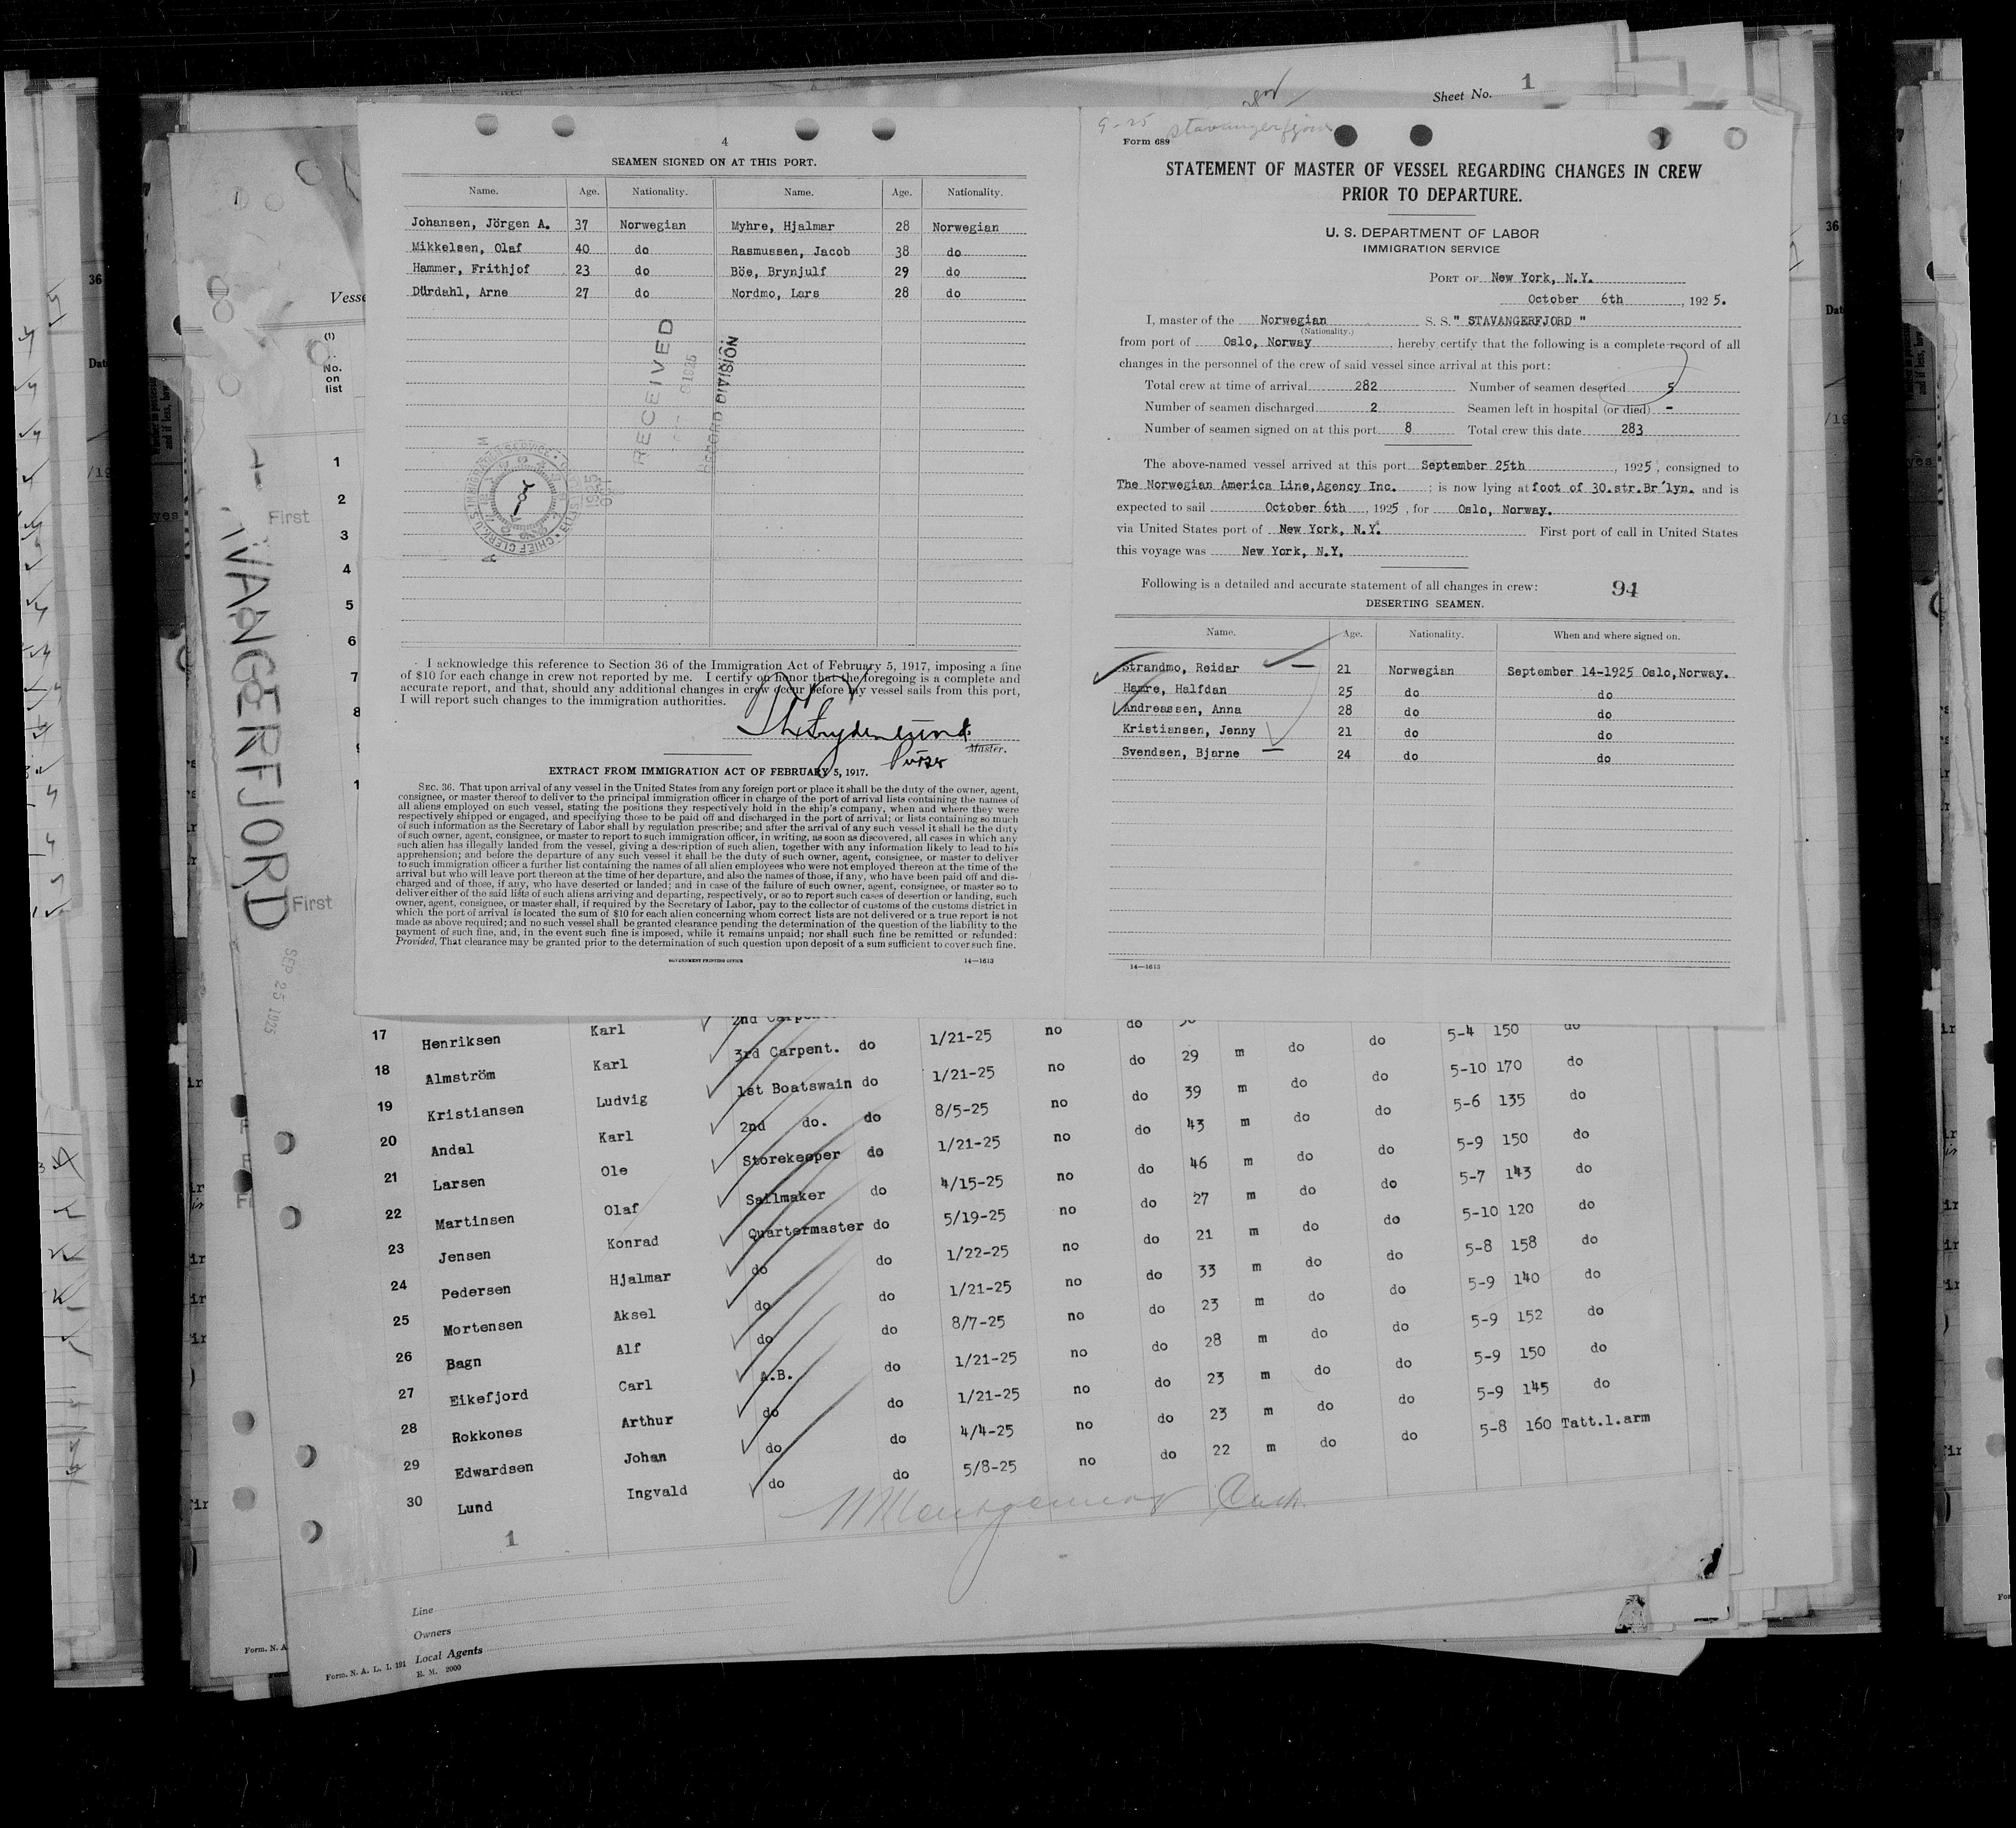 Sheet No. 1
4
SEAMEN SIGNED ON AT THIS PORT.
Name. Age. Nationality. Name. Age. Nationality.
Johansen, Jörgen A. 37 Norwegian Myhre, Hjalmar 28 Norwegian
Mikkelsen, Olaf 40 do Rasmussen, Jacob 38 do
Hammer, Frithjof 23 do Böe, Brynjulf 29 do
Dürdahl, Arne 27 do Nordmo, Lars 28 do
RECEIVED
RECORD DIVISION
I acknowledge this reference to Section 36 of the Immigration Act of February 5, 1917, imposing a fine
of $10 for each change in crew not reported by me. I certify on honor that the foregoing is a complete and
accurate report, and that, should any additional changes in crew occur before my vessel sails from this port,
I will report such changes to the immigration authorities.
Master.
Purser
EXTRACT FROM IMMIGRATION ACT OF FEBRUARY 5, 1917.
SEC. 36. That upon arrival of any vessel in the United States from any foreign port or place it shall be the duty of the owner, agent,
consignee, or master thereof to deliver to the principal immigration officer in charge of the port of arrival lists containing the names of
all aliens employed on such vessel, stating the positions they respectively hold in the ship's company, when and where they were
respectively shipped or engaged, and specifying those to be paid off and discharged in the port of arrival; or lists containing so much
of such information as the Secretary of Labor shall by regulation prescribe; and after the arrival of any such vessel it shall be the duty
of such owner, agent, consignee, or master to report to such immigration officer, in writing, as soon as discovered, all cases in which any
such alien has illegally landed from the vessel, giving a description of such alien, together with any information likely to lead to his
apprehension; and before the departure of any such vessel it shall be the duty of such owner, agent, consignee, or master to deliver
to such immigration officer a further list containing the names of all alien employees who were not employed thereon at the time of the
arrival but who will leave port thereon at the time of her departure, and also the names of those, if any, who have been paid off and dis-
charged and of those, if any, who have deserted or landed; and in case of the failure of such owner, agent, consignee, or master so to
deliver either of the said lists of such aliens arriving and departing, respectively, or so to report such cases of desertion or landing, such
owner, agent, consignee, or master shall, if required by the Secretary of Labor, pay to the collector of customs of the customs district in
which the port of arrival is located the sum of $10 for each alien concerning whom correct lists are not delivered or a true report is not
made as above required; and no such vessel shall be granted clearance pending the determination of the question of the liability to the
payment of such fine, and, in the event such fine is imposed, while it remains unpaid; nor shall such fine be remitted or refunded:
Provided, That clearance may be granted prior to the determination of such question upon deposit of a sum sufficient to cover such fine.
GOVERNMENT PRINTING OFFICE 14—1613
9-25 Stavangerfjord
Form 689
STATEMENT OF MASTER OF VESSEL REGARDING CHANGES IN CREW
PRIOR TO DEPARTURE.
U. S. DEPARTMENT OF LABOR
IMMIGRATION SERVICE
PORT OF New York, N.Y.
October 6th, 1925.
I, master of the Norwegian S. S. " STAVANGERFJORD "
(Nationality.)
from port of Oslo, Norway, hereby certify that the following is a complete record of all
changes in the personnel of the crew of said vessel since arrival at this port:
Total crew at time of arrival 282 Number of seamen deserted 5
Number of seamen discharged 2 Seamen left in hospital (or died) -
Number of seamen signed on at this port 8 Total crew this date 283
The above-named vessel arrived at this port September 25th, 1925, consigned to
The Norwegian America Line,Agency Inc.; is now lying at foot of 30.str.Br'lyn. and is
expected to sail October 6th, 1925, for Oslo, Norway.
via United States port of New York, N.Y. First port of call in United States
this voyage was New York, N.Y.
Following is a detailed and accurate statement of all changes in crew: 94
DESERTING SEAMEN.
Name. Age. Nationality. When and where signed on.
Strandmo, Reidar 21 Norwegian September 14-1925 Oslo,Norway.
Hamre, Halfdan 25 do do
Andreassen, Anna 28 do do
Kristiansen, Jenny 21 do do
Svendsen, Bjarne 24 do do
14—1613
(3)
No.
on
list
1
2
3
4
5
6
7
8
First
First
SEP 25 1925
17 Henriksen Karl 2nd 1/21-25 no do 5-4 150 do
18 Almström Karl 3rd Carpent. do 1/21-25 no do 29 m do do 5-10 170 do
19 Kristiansen Ludvig 1st Boatswain do 8/5-25 no do 39 m do do 5-6 135 do
20 Andal Karl 2nd do. do 1/21-25 no do 43 m do do 5-9 150 do
21 Larsen Ole Storekeeper do 4/15-25 no do 46 m do do 5-7 143 do
22 Martinsen Olaf Sailmaker do 5/19-25 no do 27 m do do 5-10 120 do
23 Jensen Konrad Quartermaster do 1/22-25 no do 21 m do do 5-8 158 do
24 Pedersen Hjalmar do do 1/21-25 no do 33 m do do 5-9 140 do
25 Mortensen Aksel do do 8/7-25 no do 23 m do do 5-9 152 do
26 Bagn Alf do do 1/21-25 no do 28 m do do 5-9 150 do
27 Eikefjord Carl A.B. do 1/21-25 no do 23 m do do 5-9 145 do
28 Rokkones Arthur do do 4/4-25 no do 23 m do do 5-8 160 Tatt.l.arm
29 Edwardsen Johan do do 5/8-25 no do 22 m do do
30 Lund Ingvald do
1
Line
Owners
Local Agents
Form. N. A. L. I. 191
E. M. 2000